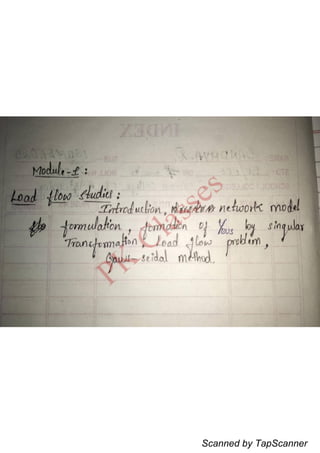 Module-1 :
Load flow studies :
Introduction, network model
formulation, formation of Ybus by singular
Transformation, Load flow problem,
Gauss-seidal method.
PK Classes
INDEX
Scanned by TapScanner